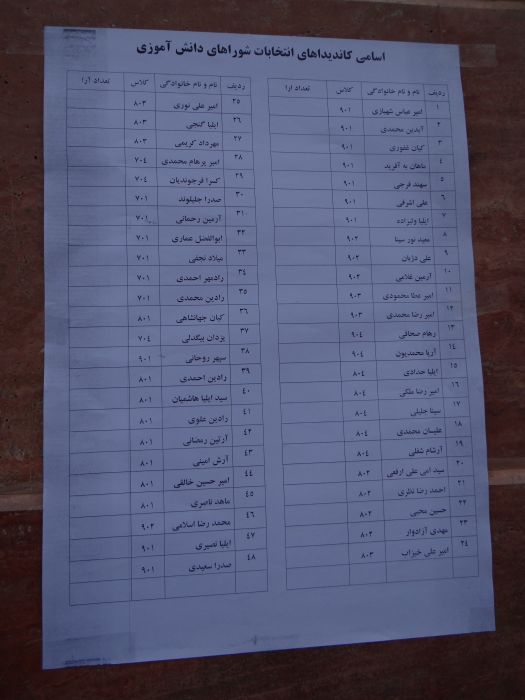 اسامی کاندیداهای انتخابات شوراهای دانش آموزی
ردیف نام و نام خانوادگی کلاس تعداد ارا
۱ امیر عباس شهبازی ۹۰۱
۲ آیدین محمدی ۹۰۱
۳ کیان غفوری ۹۰۱
۴ ماهان به آفرید ۹۰۱
۵ سهند فرجی ۹۰۱
۶ علی اشرفی ۹۰۱
۷ ایلیا ولیزاده ۹۰۱
۸ معید نور سینا ۹۰۲
۹ علی دژبان ۹۰۲
۱۰ آرمین غلامی ۹۰۲
۱۱ امیر عطا محمودی ۹۰۳
۱۲ امیر رضا محمدی ۹۰۳
۱۳ رهام صحافی ۹۰۴
۱۴ آریا محمدیون ۹۰۴
۱۵ ایلیا حدادی ۸۰۴
۱۶ امیر رضا ملکی ۸۰۴
۱۷ سینا جلیلی ۸۰۴
۱۸ علیسان محمدی ۸۰۴
۱۹ آرشام شفلی ۸۰۴
۲۰ سید امی علی ارفعی ۸۰۲
۲۱ احمد رضا نظری ۸۰۲
۲۲ حسین محبی ۸۰۲
۲۳ مهدی آزادوار ۸۰۲
۲۴ امیر علی خیزاب ۸۰۳
ردیف نام و نام خانوادگی کلاس تعداد آرا
۲۵ امیر علی نوری ۸۰۳
۲۶ ایلیا گنجی ۸۰۳
۲۷ مهرداد کریمی ۸۰۳
۲۸ امیر پرهام محمدی ۷۰۴
۲۹ کسرا فرجوندیان ۷۰۴
۳۰ صدرا جلیلوند ۷۰۱
۳۱۰ آرمین رحمانی ۷۰۱
۳۲ ابوالفضل عماری ۷۰۱
۳۳ میلاد نجفی ۷۰۱
۳۴ رادمهر احمدی ۷۰۱
۳۵ رادین محمدی ۷۰۱
۳۶ کیان جهانشاهی ۸۰۱
۳۷ یزدان بیگدلی ۷۰۴
۳۸ سپهر روحانی ۹۰۱
۳۹ رادین احمدی ۸۰۱
۴۰ سید ایلیا هاشمیان ۸۰۱
۴۱ رادین علوی ۸۰۱
۴۲ آرتین رمضانی ۸۰۱
۴۳ آرش امینی ۸۰۱
۴۴ امیر حسین خالقی ۸۰۱
۴۵ ماهد ناصری ۸۰۱
۴۶ محمد رضا اسلامی ۹۰۲
۴۷ ایلیا نصیری ۹۰۱
۴۸ صدرا سعیدی ۹۰۱